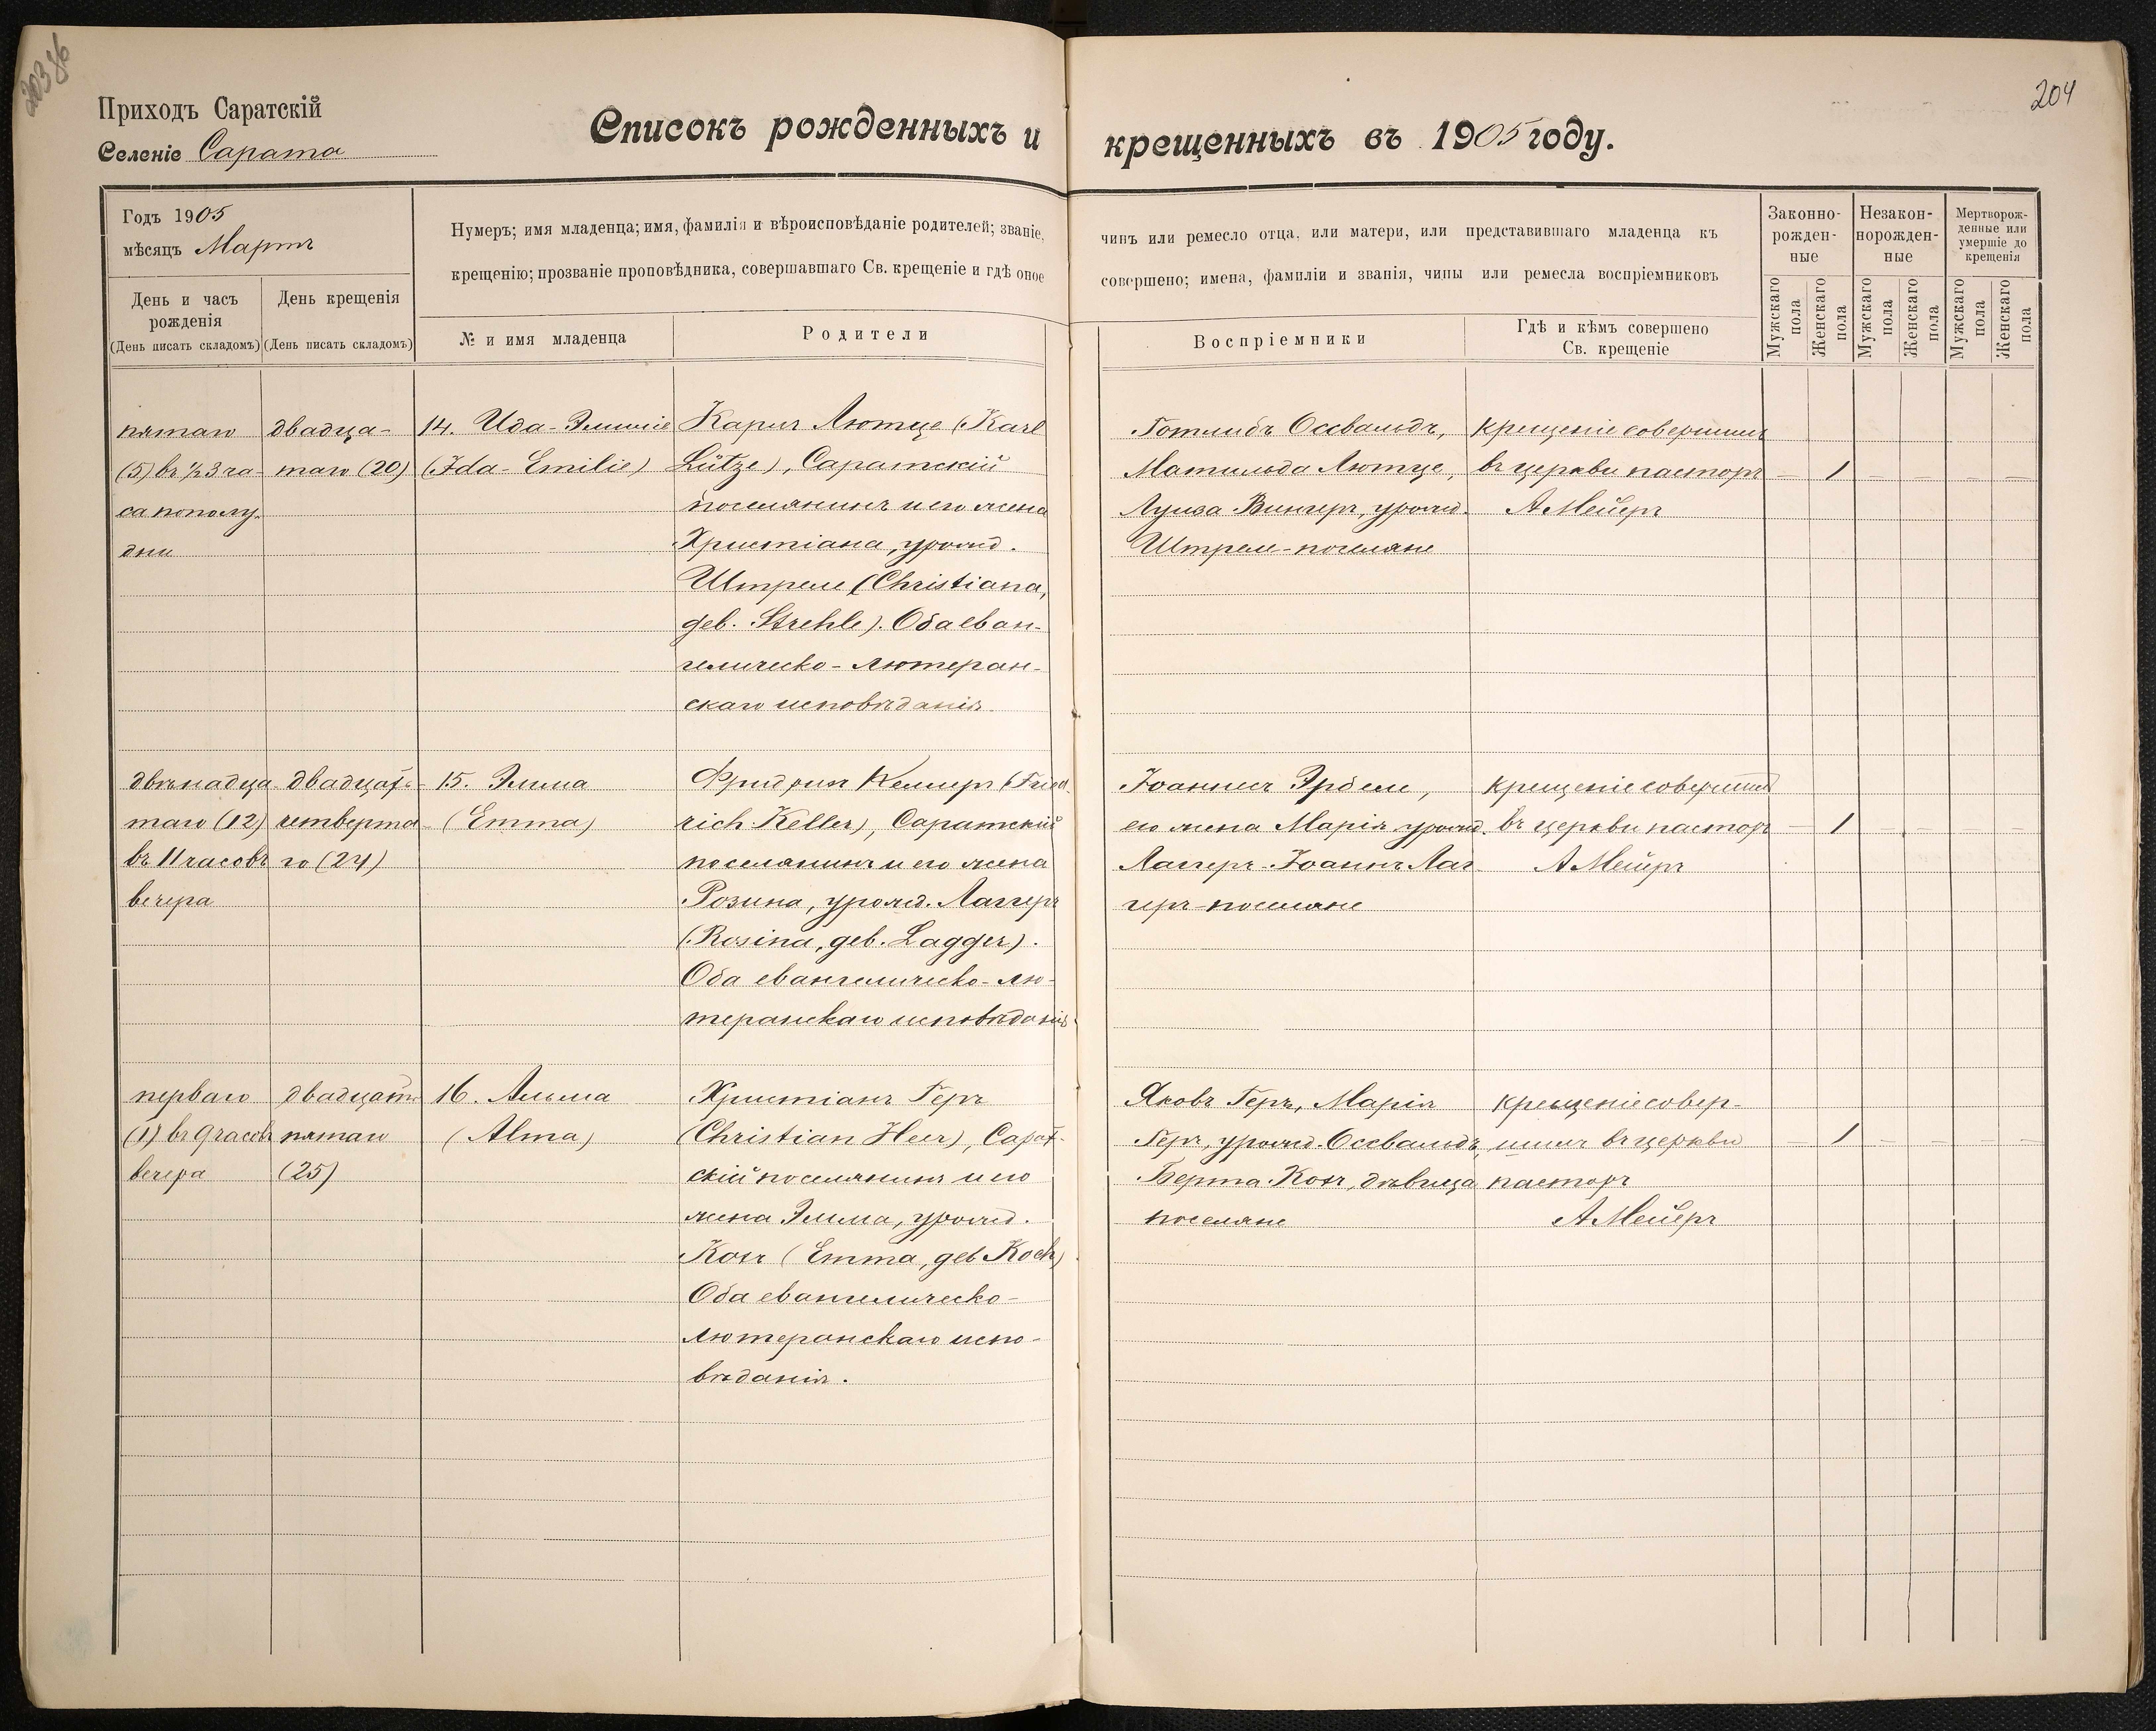 203 об
204
Приходъ Саратскій
Селеніе Сарата
Списокъ рожденныхъ и крещенныхъ въ 1905 году.
Годъ 1905
мѣсяцъ Мартъ
Нумеръ; имя младенца; имя, фамилія и вѣроисповѣданіе родителей; званіе, чинъ или ремесло отца, или матери, или представившаго младенца къ
крещенію; прозваніе проповѣдника, совершавшаго Св. крещеніе и гдѣ оное совершено; имена, фамиліи и званія, чины или ремесла воспріемниковъ
День и часъ
рожденія
(День писать складомъ)
День крещенія
(День писать складомъ)
№ и имя младенца
Родители
Воспріемники
Гдѣ и кѣмъ совершено
Св. крещеніе
Законно-
рожден-
ные
Незакон-
норожден-
ные
Мертворож-
денные или
умершіе до
крещенія
Мужскаго
пола
Женскаго
пола
Мужскаго
пола
Женскаго
пола
Мужскаго
пола
Женскаго
пола
пятаго
(5) въ ½ 3 ча-
са пополу-
дни
двадца-
таго (20)
14. Ида-Эмиліе
(Ida-Emilie)
Карлъ Лютце (Karl
Lütze), Саратскій
поселянинъ и его жена
Христіана, урожд.
Штреле (Christiana,
geb. Strehle). Оба еван-
гелическо-лютеран-
скаго исповѣданія.
Готлибъ Оссвальдъ,
Матильда Лютце,
Луиза Вингеръ, урожд.
Штреле - поселяне
Крещеніе совершилъ
въ церкви пасторъ
А Мейеръ
- 1 - - - -
двѣнадца-
таго (12)
въ 11 часовъ
вечера
двадцать
четверта-
го (24)
15. Эмма
(Emma)
Фридрихъ Келлеръ (Fried-
rich Keller), Саратскій
поселянинъ и его жена
Розина, урожд. Лаггеръ
(Rosina, geb. Lagger).
Оба евангелическо-лю-
теранскаго исповѣданія
Іоаннесъ Эрбеле,
его жена Марія урожд.
Лаггеръ. Іоаннъ Лаг-
геръ - поселяне
Крещеніе совершилъ
въ церкви пасторъ
А Мейеръ
- 1 - - - -
перваго
(1) въ 9 часовъ
вечера
двадцать
пятаго
(25)
16. Альма
(Alma)
Христіанъ Геръ
(Christian Heer), Сарат-
скій поселянинъ и его
жена Эмма, урожд.
Кохъ (Emma, geb. Koch)
Оба евангелическо-
лютеранскаго испо-
вѣданія.
Яковъ Геръ, Марія
Геръ, урожд. Оссвальдъ,
Берта Кохъ, дѣвица
поселяне
Крещеніе совер-
шилъ въ церкви
пасторъ
А Мейеръ
1 - - - -